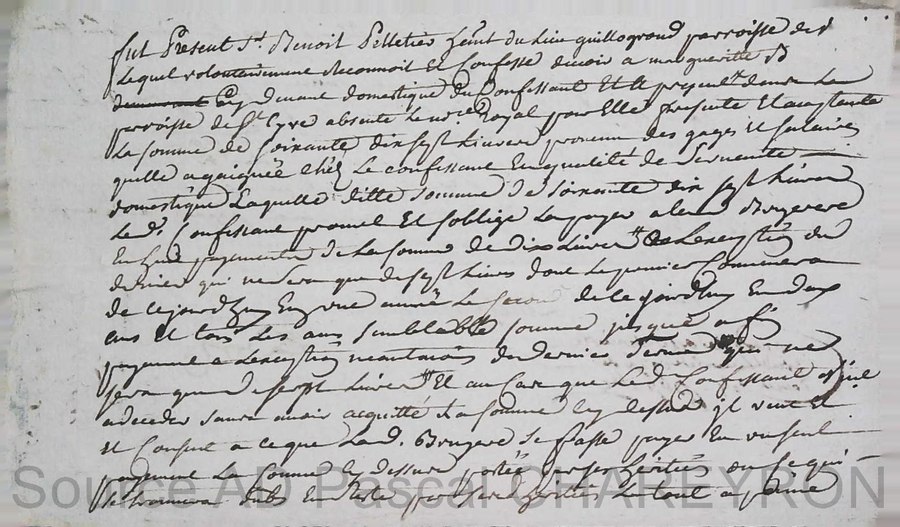 fut Present Sr. Benoit Pelletier heint du lieu guillogrand parroisse de
Lequel volontairement Reconnoit Et Confesse devoir a margueritte B
demeurant Cy devant domestique du Confessant Et Et presente dans La
parroisse de St Cyre absente Le no.re Royal pour Elle presente Et acceptante
La somme de soixante dix sept livres provenu des gages Et salaires
quelle a gaignée Chez Le confessant En qualité de servente
domestique Laquelle ditte somme de soixante dix sept livres
Led. Confessant promet Et soblige La payer a lad. Brugere
En payements de La somme de dix Livres a Lexception du
dernier qui ne sera que de sept livres dont Le premier Commencera
de cejourdhuy En une année Le second de cejourdhuy En deux
ans Et tous Les ans semblable somme jusqué a fin
payement a Lexception neantmoins du dernier Terme qui ne
sera que de sept livres Et au Cas que Led. Confessant
a deceder sans avoir acquitté La somme Cy dessus il veut Et
Et Consent a ce que Lad. Brugere se fasse payer En un seul
payement La somme Cy dessus portée par ses heritiés ou Ce qui
se trouvera du En reste par sesd. heritiés Le tout a peine
Source AD Pascal CHAREYRON